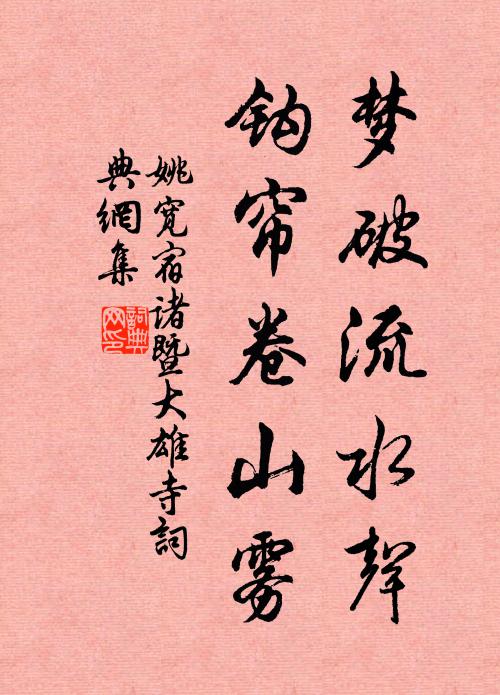 梦破流水声
钩帘卷山雾
姚宽宿诸暨大雄寺詞
典網集
詞典
网印